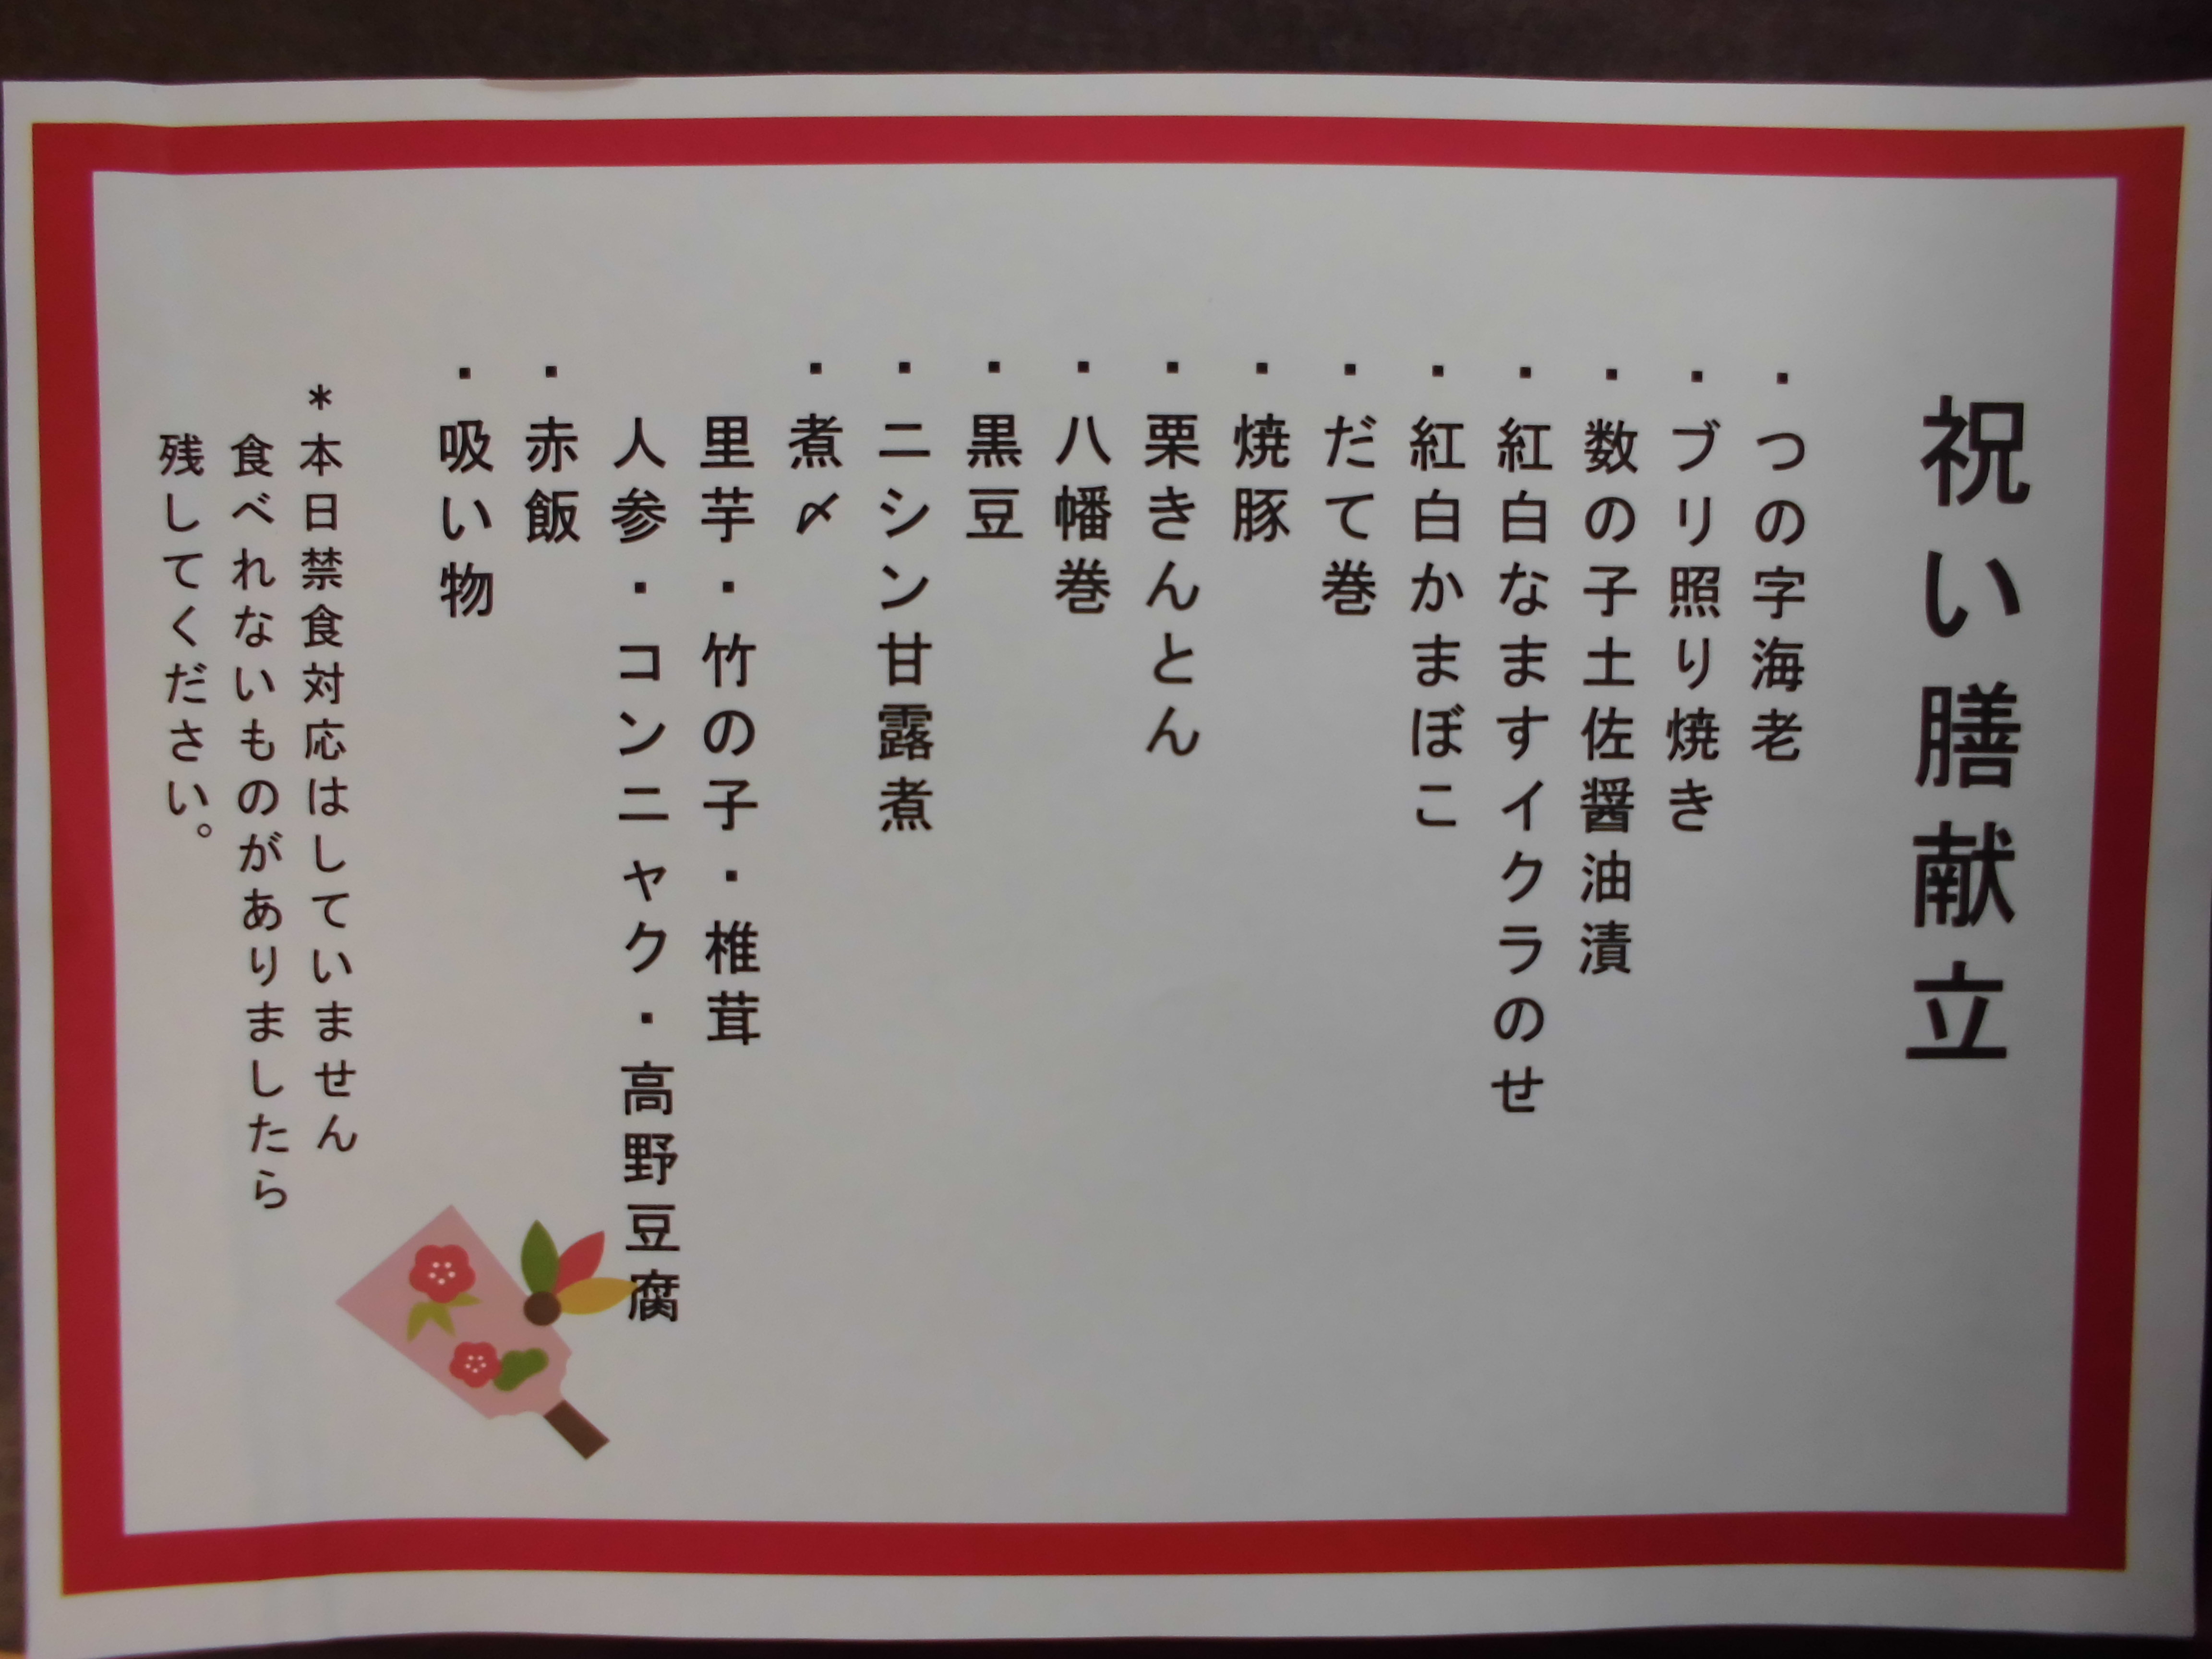 祝い膳献立
・つの字海老
・ブリ照り焼き
・数の子土佐醤油漬
・紅白なますイクラのせ
・紅白かまぼこ
・だて巻
・焼豚
・栗きんとん
・八幡巻
・黒豆
・ニシン甘露煮
・煮〆
里芋・竹の子・椎茸
人参・コンニャク・高野豆腐
・赤飯
・吸い物
*本日禁食対応はしていません
食べれないものがありましたら
残してください。